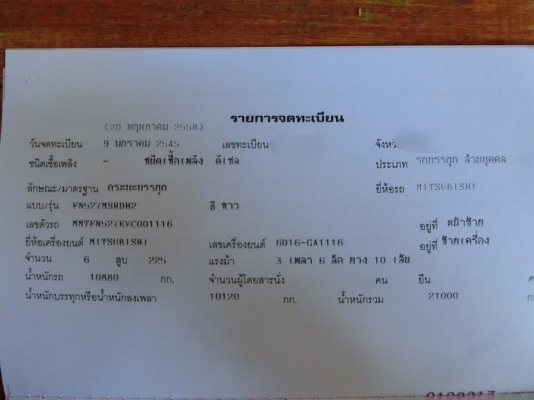 รายการจดทะเบียน
(20 พฤษภาคม 2558)
วันจดทะเบียน 9 มกราคม 2545 เลขทะเบียน จังหวั
ชนิดเชื้อเพลิง - ชนิดเชื้อเพลิง ดีเซล ประเภท รถบรรทุก ส่วนบุคคล
ลักษณะ/มาตรฐาน กระบะบรรทุก ยี่ห้อรถ MITSUBISHI
แบบ/รุ่น FN527MSRDH2 สี ขาว
เลขตัวรถ MMTFN527KVC001116 อยู่ที่ หน้าซ้าย
ยี่ห้อเครื่องยนต์ MITSUBISHI เลขเครื่องยนต์ 6D16-CA1116 อยู่ที่ ซ้ายเครื่อง
จำนวน 6 สูบ 225 แรงม้า 3 เพลา 6 ล้อ ยาง 10 เส้น
น้ำหนักรถ 10880 กก. จำนวนผู้โดยสารนั่ง คน ยืน ค
น้ำหนักบรรทุกหรือน้ำหนักลงเพลา 10120 กก. น้ำหนักรวม 21000 ก